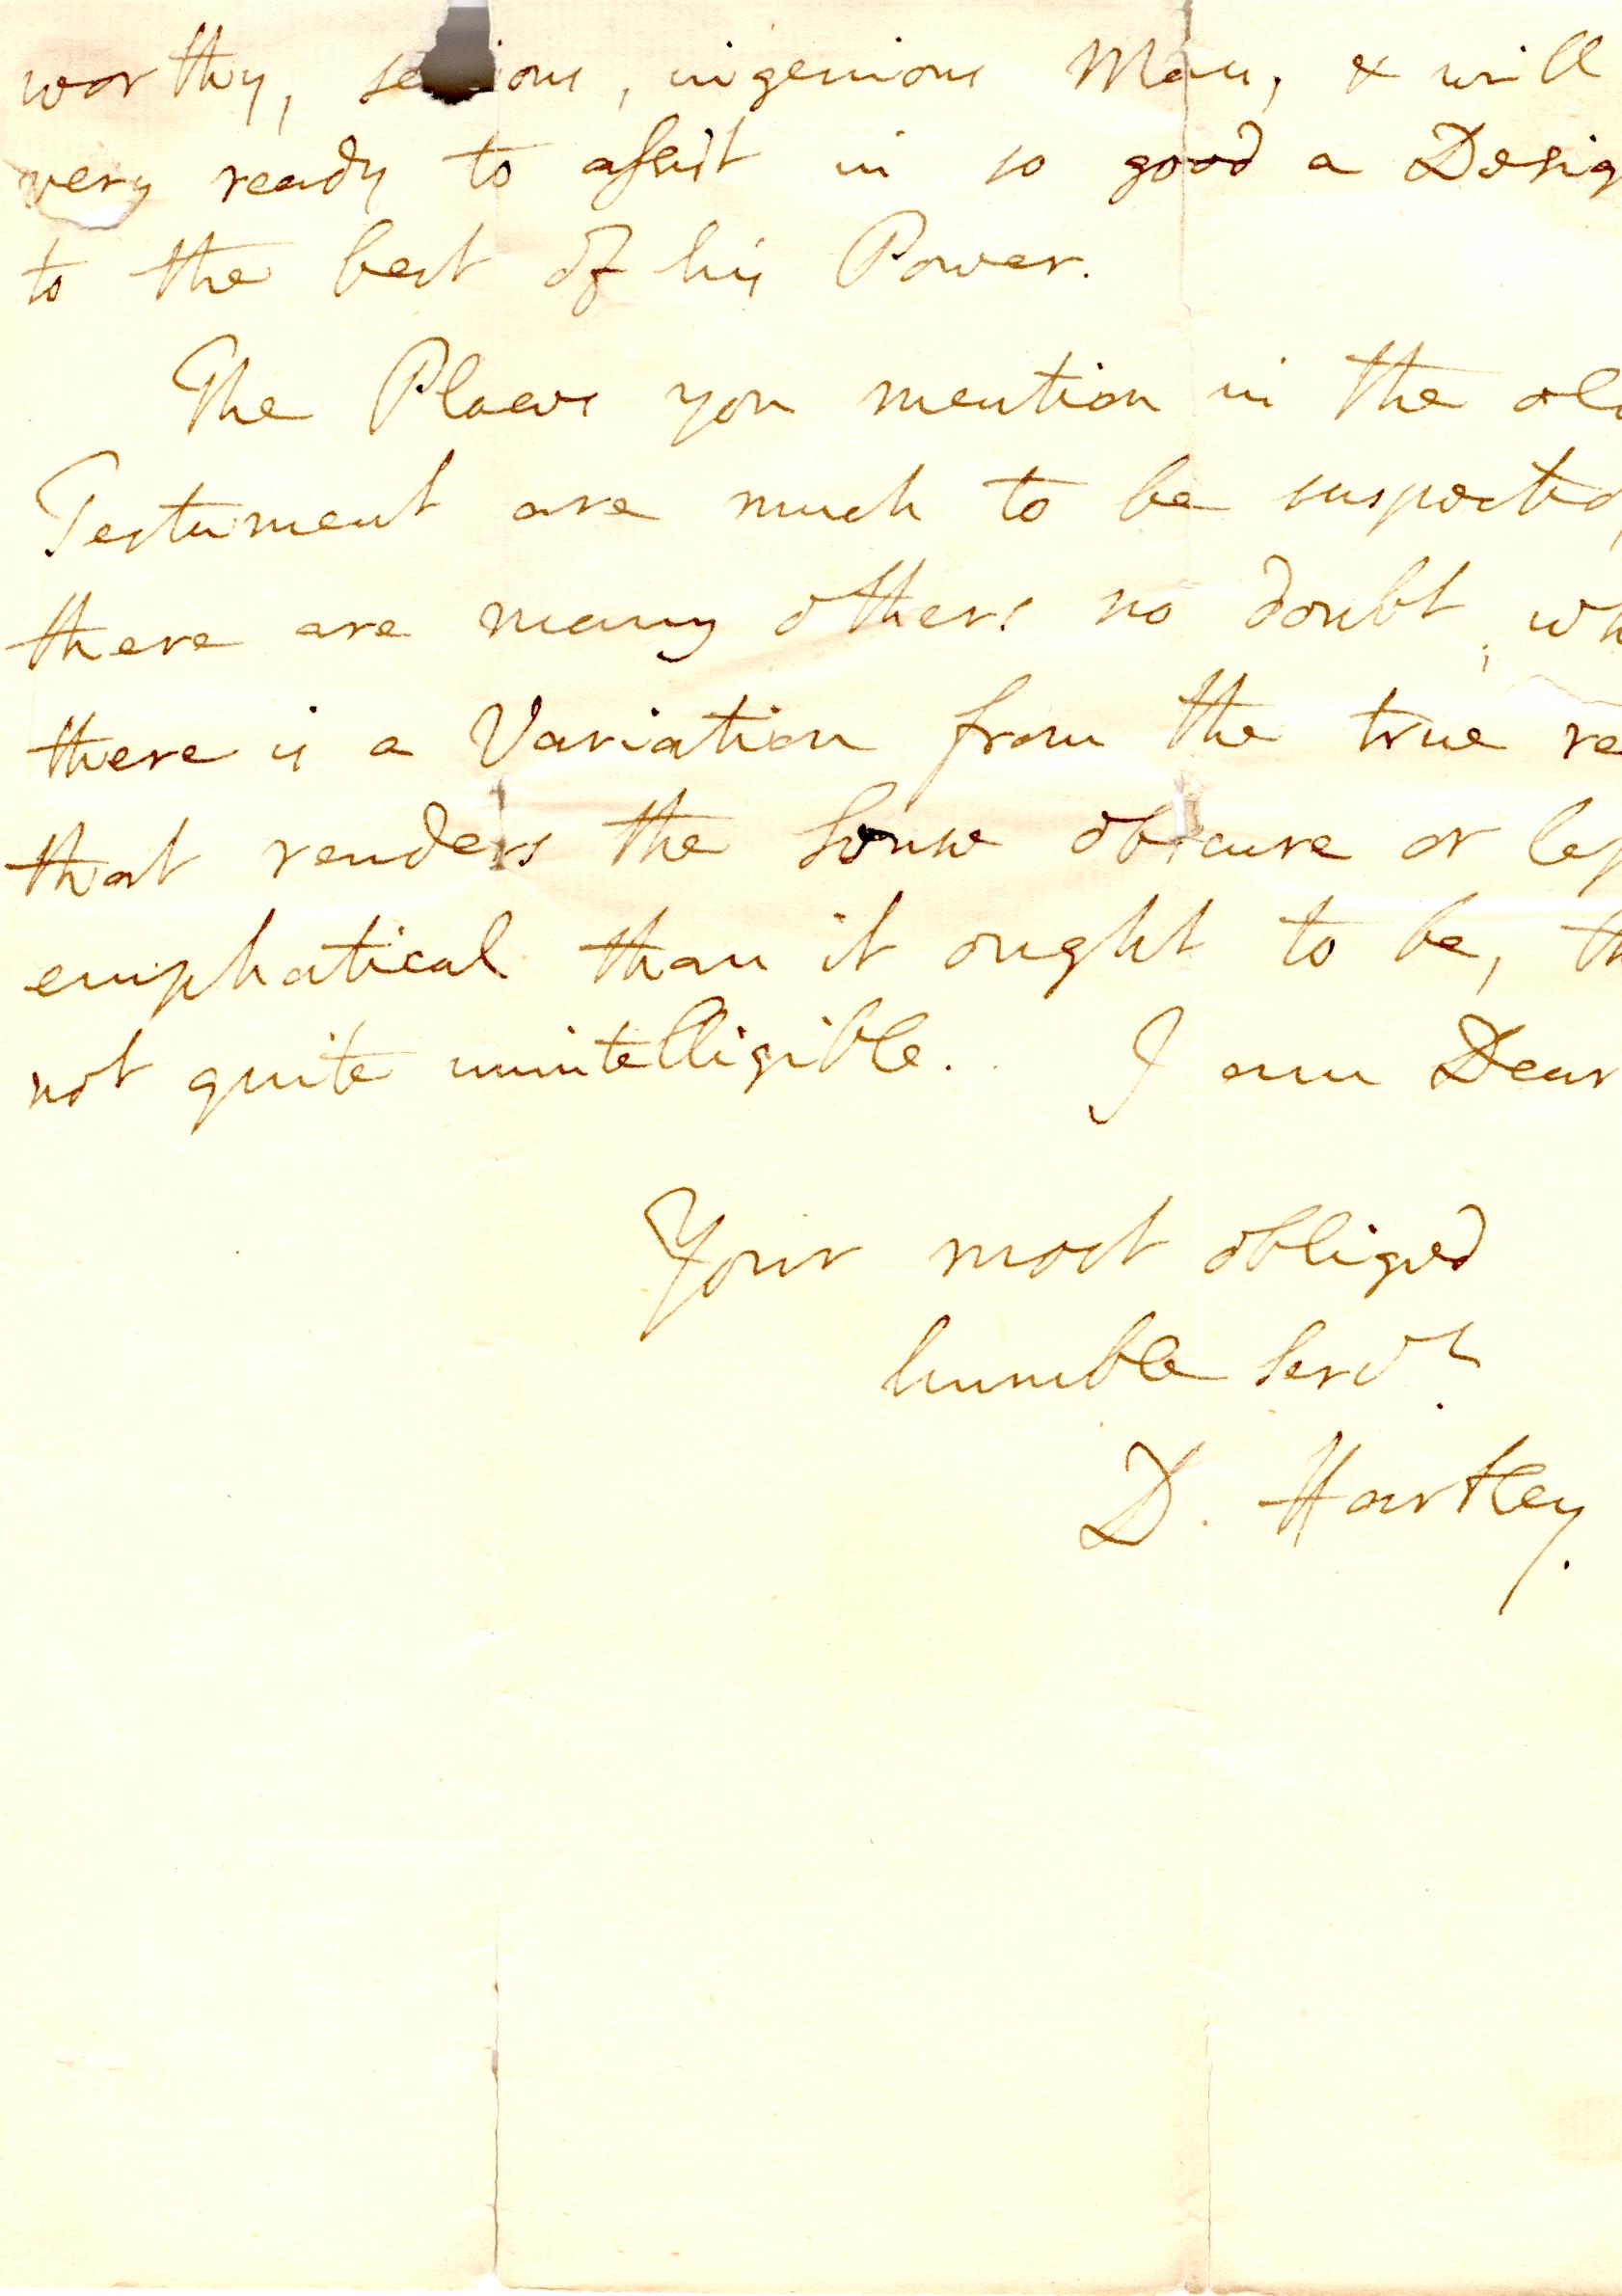 worthy, serious, ingenious Man, & will
very ready to assist in so good a Desig
to the best of his Power.
The Places you mention in the old
Testament are much to be suspected,
there are many others no doubt, wh
there is a Variation from the true re
that renders the Sense obscure or less
emphatical than it ought to be, th
not quite unintelligible. I am Dear
Your most obliged
humble Servt.
D. Hartley.